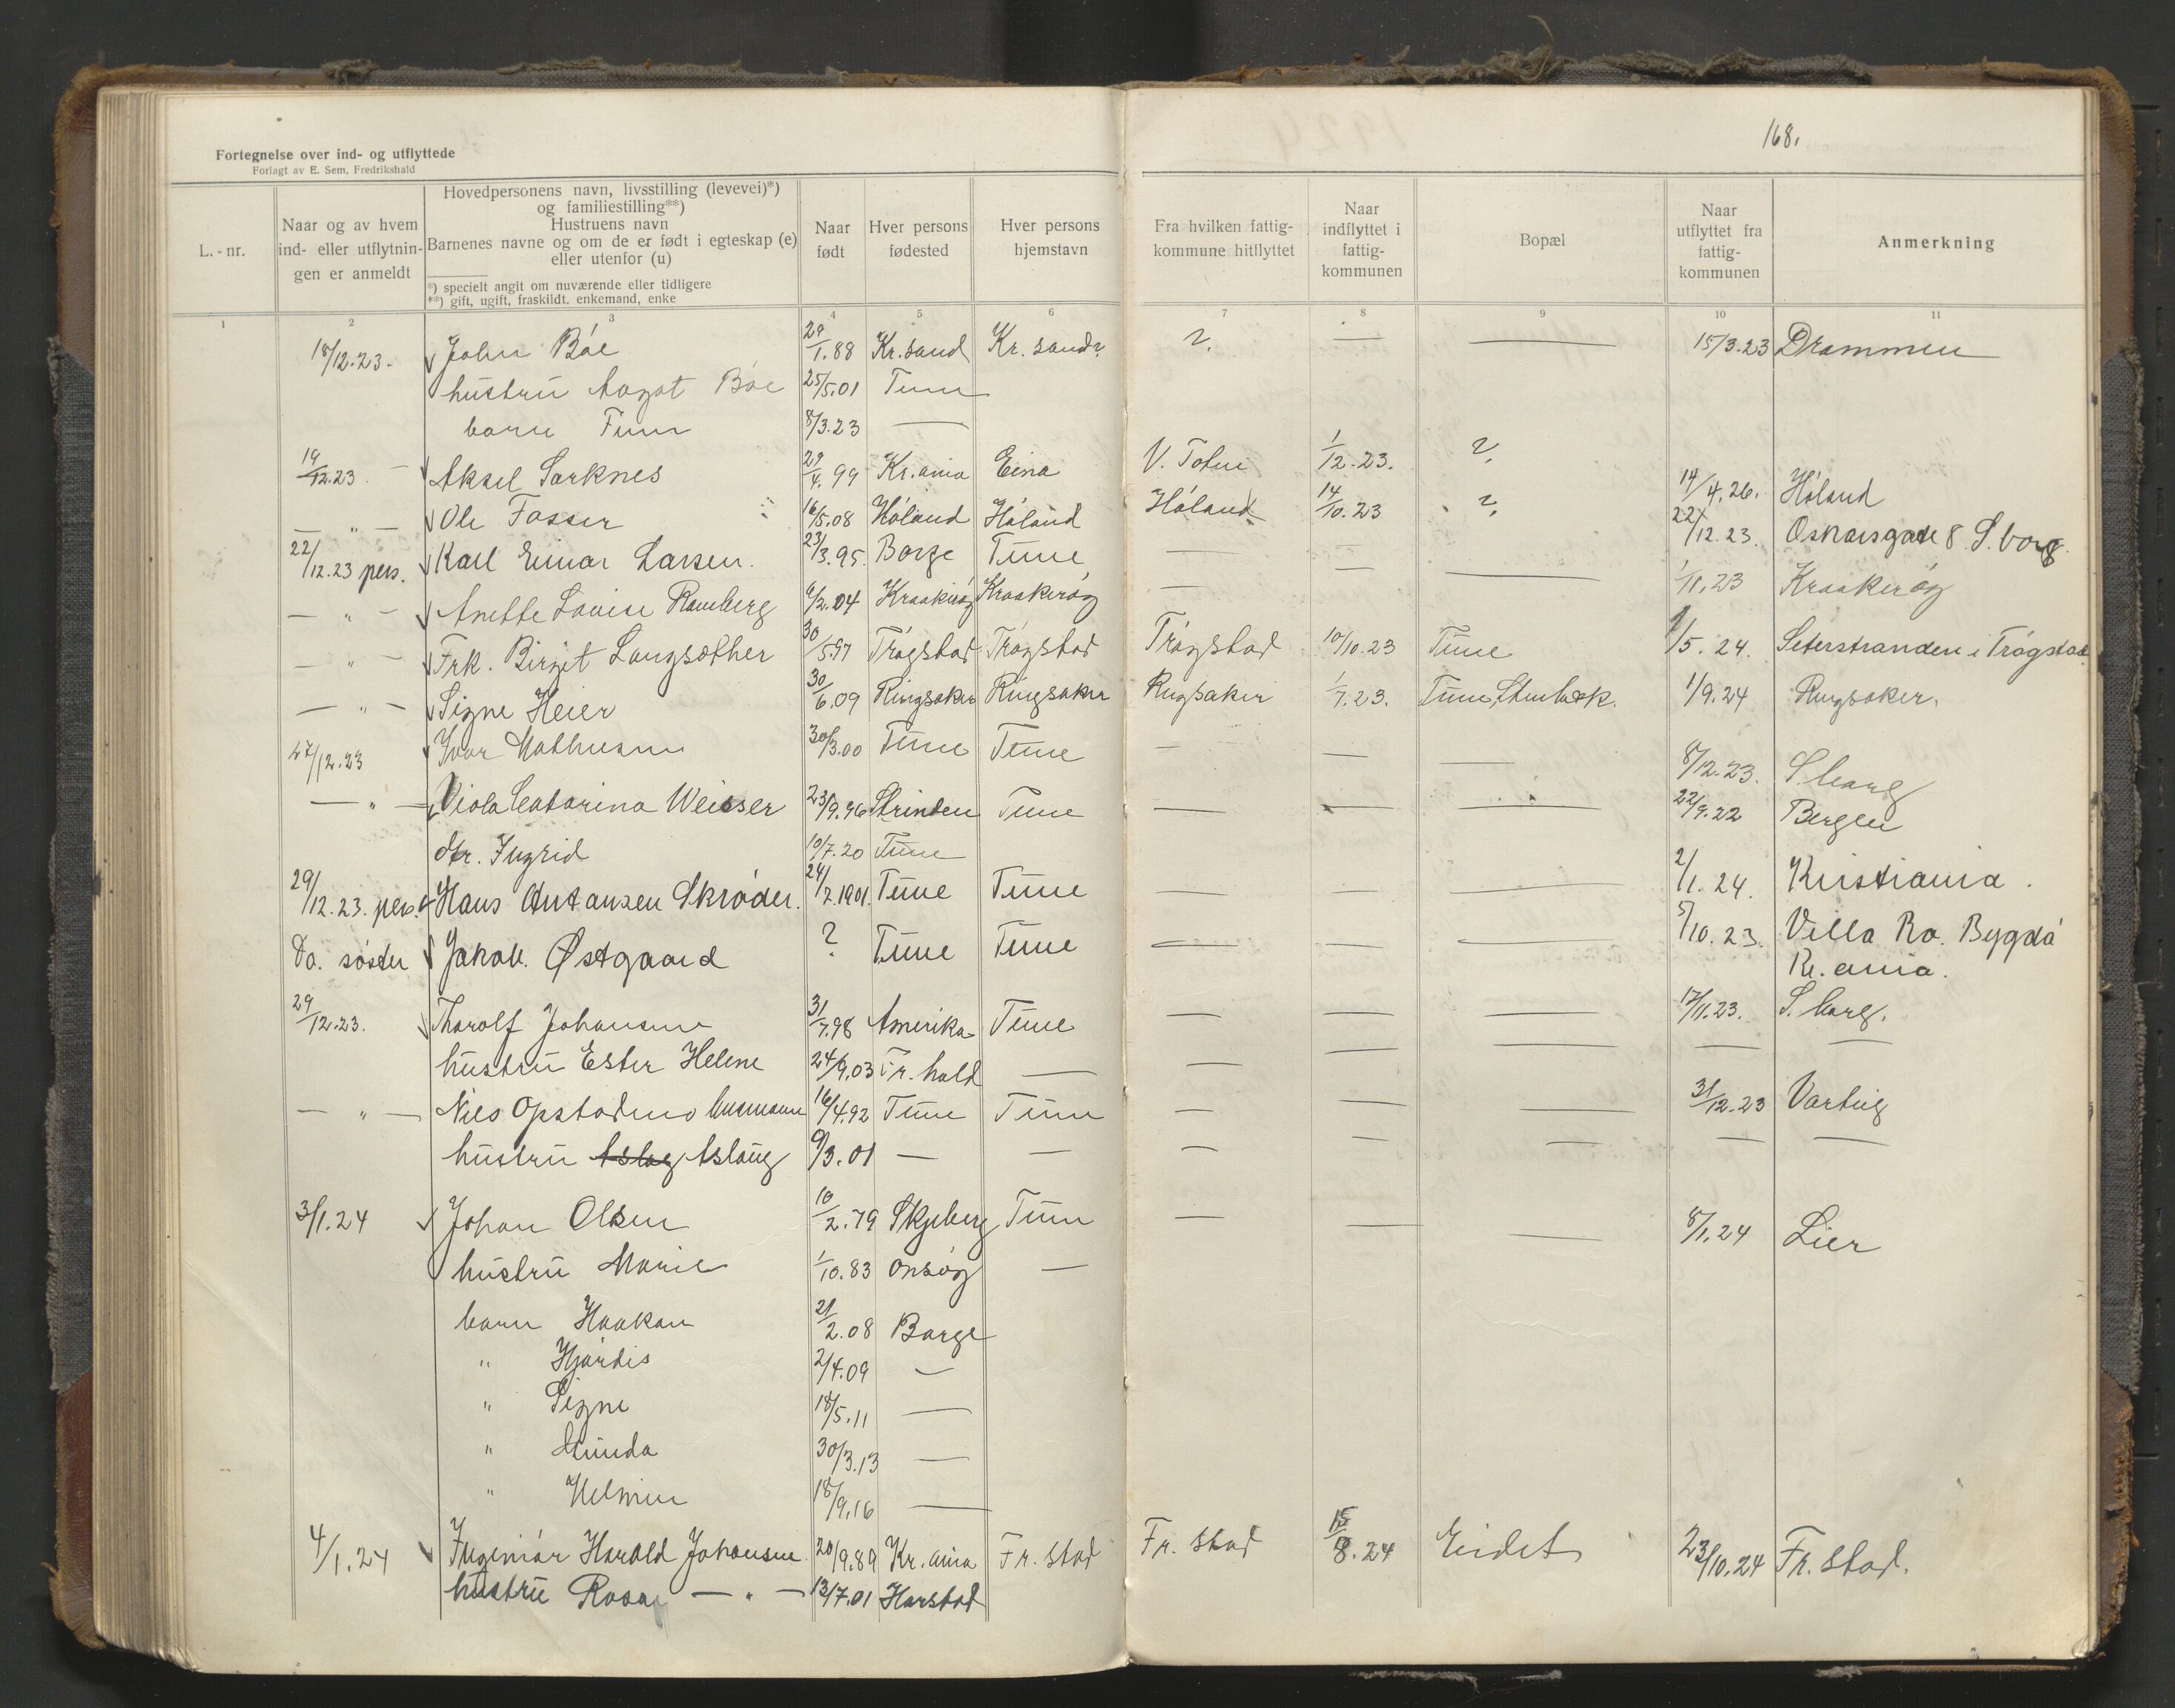 168.
Fortegnelse over ind- og utflyttede
Forlagt av E. Sem, Fredrikshald
L.-nr.
Naar og av hvem ind- eller utflytnin-gen er anmeldt
Hovedpersonens navn, livsstilling (levevei)*)
og familiestilling**)
Hustruens navn
Barnenes navne og om de er født i egteskap (e)
eller utenfor (u)
*) specielt angit om nuværende eller tidligere
**) gift, ugift, fraskildt, enkemand, enke
Naar født
Hver persons fødested
Hver persons hjemstavn
Fra hvilken fattig-kommune hitflyttet
Naar indflyttet i fattig-kommunen
Bopæl
Naar utflyttet fra fattig-kommunen
Anmerkning
1 2 3 4 5 6 7 8 9 10 11
18/12.23. John Bøe 29/1.88 Kr.sand Kr.sand? ?. — — 15/3.23 Drammen
hustru Aagot Bøe 25/5.01 Tune
barn Finn 8/3.23 —
19/12.23 — Aksel Sarknes 29/4.99 Kr.ania Eina V. Toten 1/12.23. ?.
— " — Ole Fosser 16/5.08 Høland Høland Høland 14/10.23 ?. 14/4.26. Høland
22/12.23 pers. Karl Einar Larsen. 23/3.95. Borge Tune — — 22/12.23. Oskarsgate 8 S.borg.
— " — Anette Louise Ramberg 9/2.04 Kraakerøy Kraakerøy — — — 1/11.23 Kraakerøy
— " — Frk. Birgit Langsæther 30/5.97 Trøgstad Trøgstad Trøgstad 10/10.23 Tune 1/5.24. Seterstranden i Trøgstad
— " — Signe Heier 30/6.09 Ringsaker Ringsaker Ringsaker 1/7.23. Tune, Stenbæk. 1/9.24 Ringsaker.
27/12.23 Ivar Mathisen 30/3.00 Tune Tune — — — 8/12.23. S.borg
— " — Viola Catarina Weisser 23/9.96 Strinden Tune — — — 22/9.22 Bergen
dtr. Ingrid 10/7.20 Tune
29/12.23. pers. Hans Antonsen Skrøder. 24/2.1901. Tune Tune — — — 2/1.24. Kristiania.
Do. søster Jakob. Østgaard ? Tune Tune — — — 5/10.23. Villa Ro. Bygdø
Kr.ania.
29/12.23. Thorolf Johansen 31/7.98 Amerika Tune — — — 17/11.23. S.borg.
hustru Ester Helene 24/9.03 Fr.hald — — — — — —
— " — Nils Opstadmo 16/4.92 Tune Tune — — — 31/12.23 Varteig
hustru Aslag Aslaug 9/3.01 — — — — — — —
3/1.24 Johan Olsen 10/2.79 Skjeberg Tune — — — 8/1.24 Lier
hustru Marie 1/10.83 Onsøy —
barn Haakon 21/2.08 Borge
" Hjørdis 2/4.09 —
" Signe 18/5.11 —
" Minda 30/3.13 —
" Helmer 18/9.16 —
4/1.24 Ingemar Harald Johansen 20/9.89 Kr.ania Fr.stad Fr.stad 15/8.24 Eidet 23/10.24 Fr.stad.
hustru Rosa — " — 13/7.01 Harstad